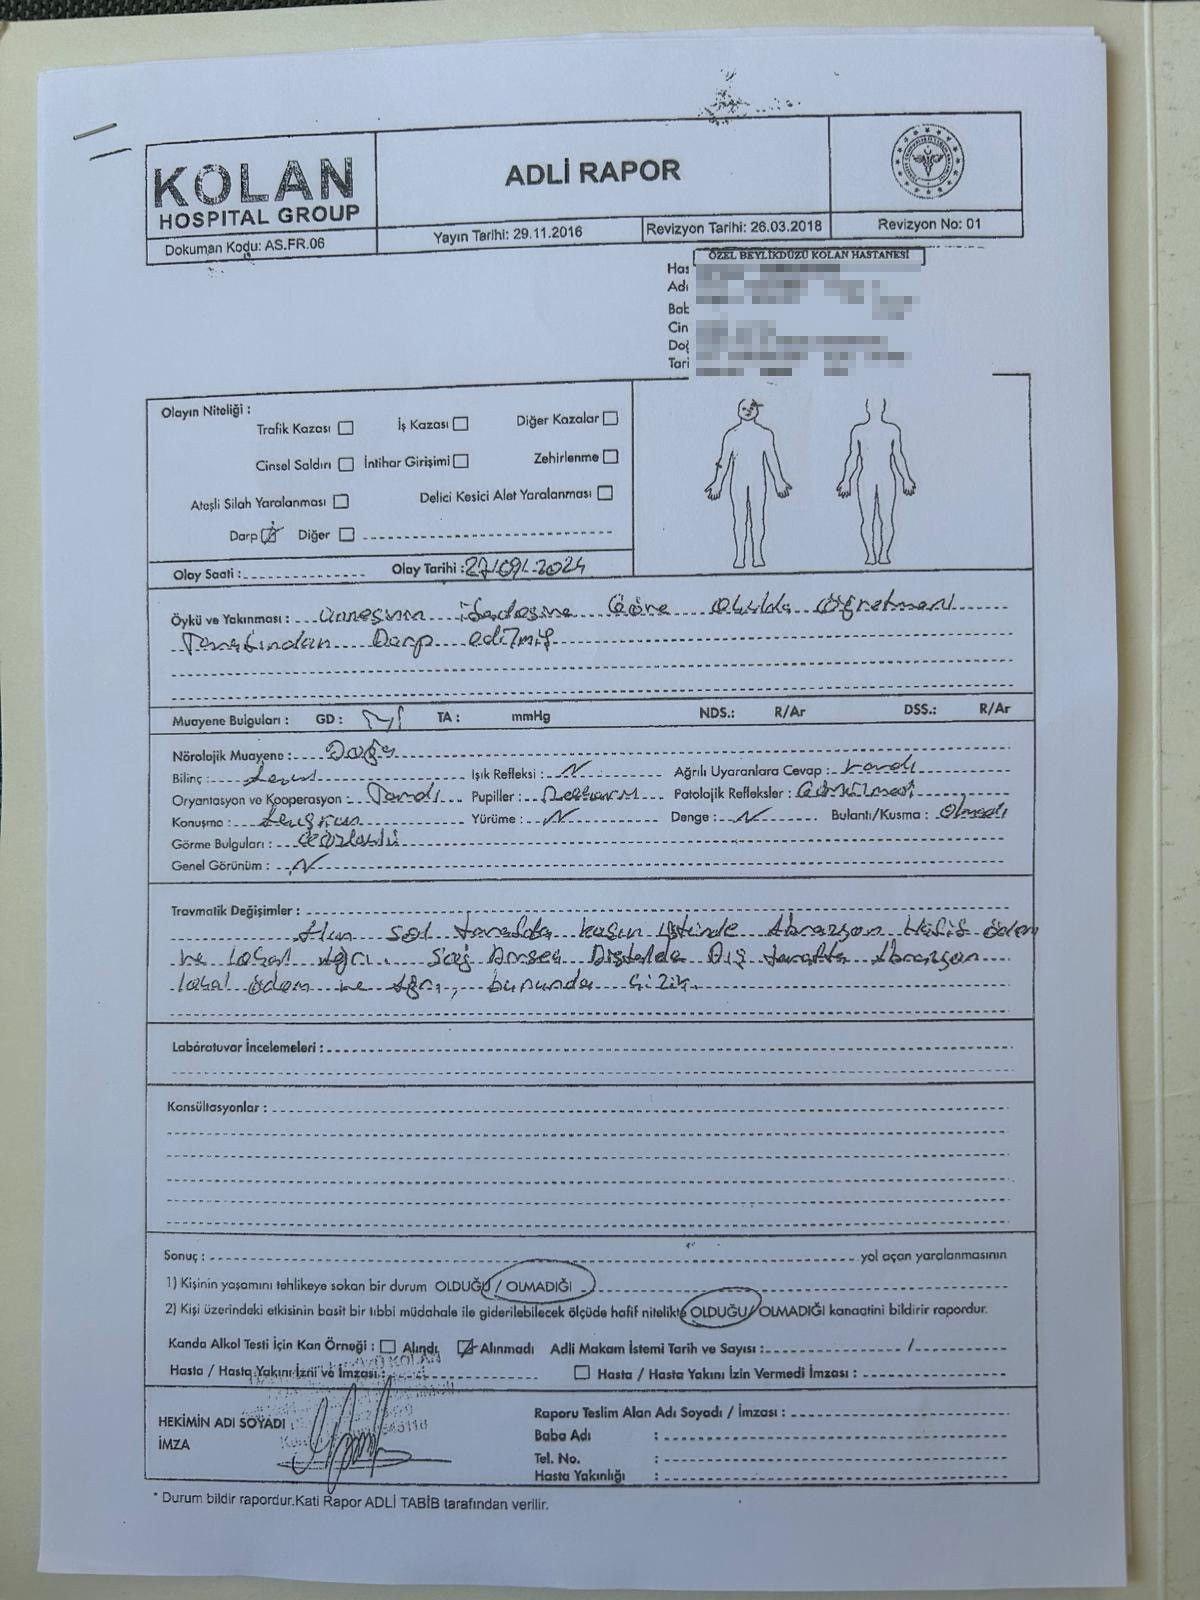 KOLAN
HOSPITAL GROUP
ADLİ RAPOR
Dokuman Kodu: AS.FR.06
Yayın Tarihi: 29.11.2016
Revizyon Tarihi: 26.03.2018
Revizyon No: 01
ÖZEL BEYLİKDÜZÜ KOLAN HASTANESİ
Has
Adı
Bab
Cin
Doğ
Tari
Olayın Niteliği :
Trafik Kazası İş Kazası Diğer Kazalar
Cinsel Saldırı İntihar Girişimi Zehirlenme
Ateşli Silah Yaralanması Delici Kesici Alet Yaralanması
Darp Diğer
Olay Saati : Olay Tarihi : 27/09/2024
Öykü ve Yakınması : annesinin ifadesine Göre Okulda öğretmeni
Tarafından Darp edilmiş
Muayene Bulguları : GD : TA : mmHg NDS.: R/Ar DSS.: R/Ar
Nörolojik Muayene : Doğal
Bilinç : Işık Refleksi : N Ağrılı Uyaranlara Cevap : vardı
Oryantasyon ve Kooperasyon : Vardı Pupiller : Patolojik Refleksler :
Konuşma : Yürüme : N Denge : N Bulantı/Kusma : Olmadı
Görme Bulguları :
Genel Görünüm : N
Travmatik Değişimler :
Alın sol tarafda kaşın üstünde Abrazyon Hafif ödem
ve lokal ağrı. Sağ Dirsek Distalde Dış tarafta Abrazyon
lokal ödem ve ağrı, burunda çizik.
Laboratuvar İncelemeleri :
Konsültasyonlar :
Sonuç : yol açan yaralanmasının
1) Kişinin yaşamını tehlikeye sokan bir durum OLDUĞU / OLMADIĞI
2) Kişi üzerindeki etkisinin basit bir tıbbi müdahale ile giderilebilecek ölçüde hafif nitelikte OLDUĞU / OLMADIĞI kanaatini bildirir rapordur.
Kanda Alkol Testi İçin Kan Örneği : Alındı Alınmadı Adli Makam İstemi Tarih ve Sayısı : /
Hasta / Hasta Yakını İzni ve İmzası : Hasta / Hasta Yakını İzin Vermedi İmzası :
HEKİMİN ADI SOYADI
İMZA
Raporu Teslim Alan Adı Soyadı / İmzası :
Baba Adı :
Tel. No. :
Hasta Yakınlığı :
* Durum bildir rapordur.Kati Rapor ADLİ TABİB tarafından verilir.